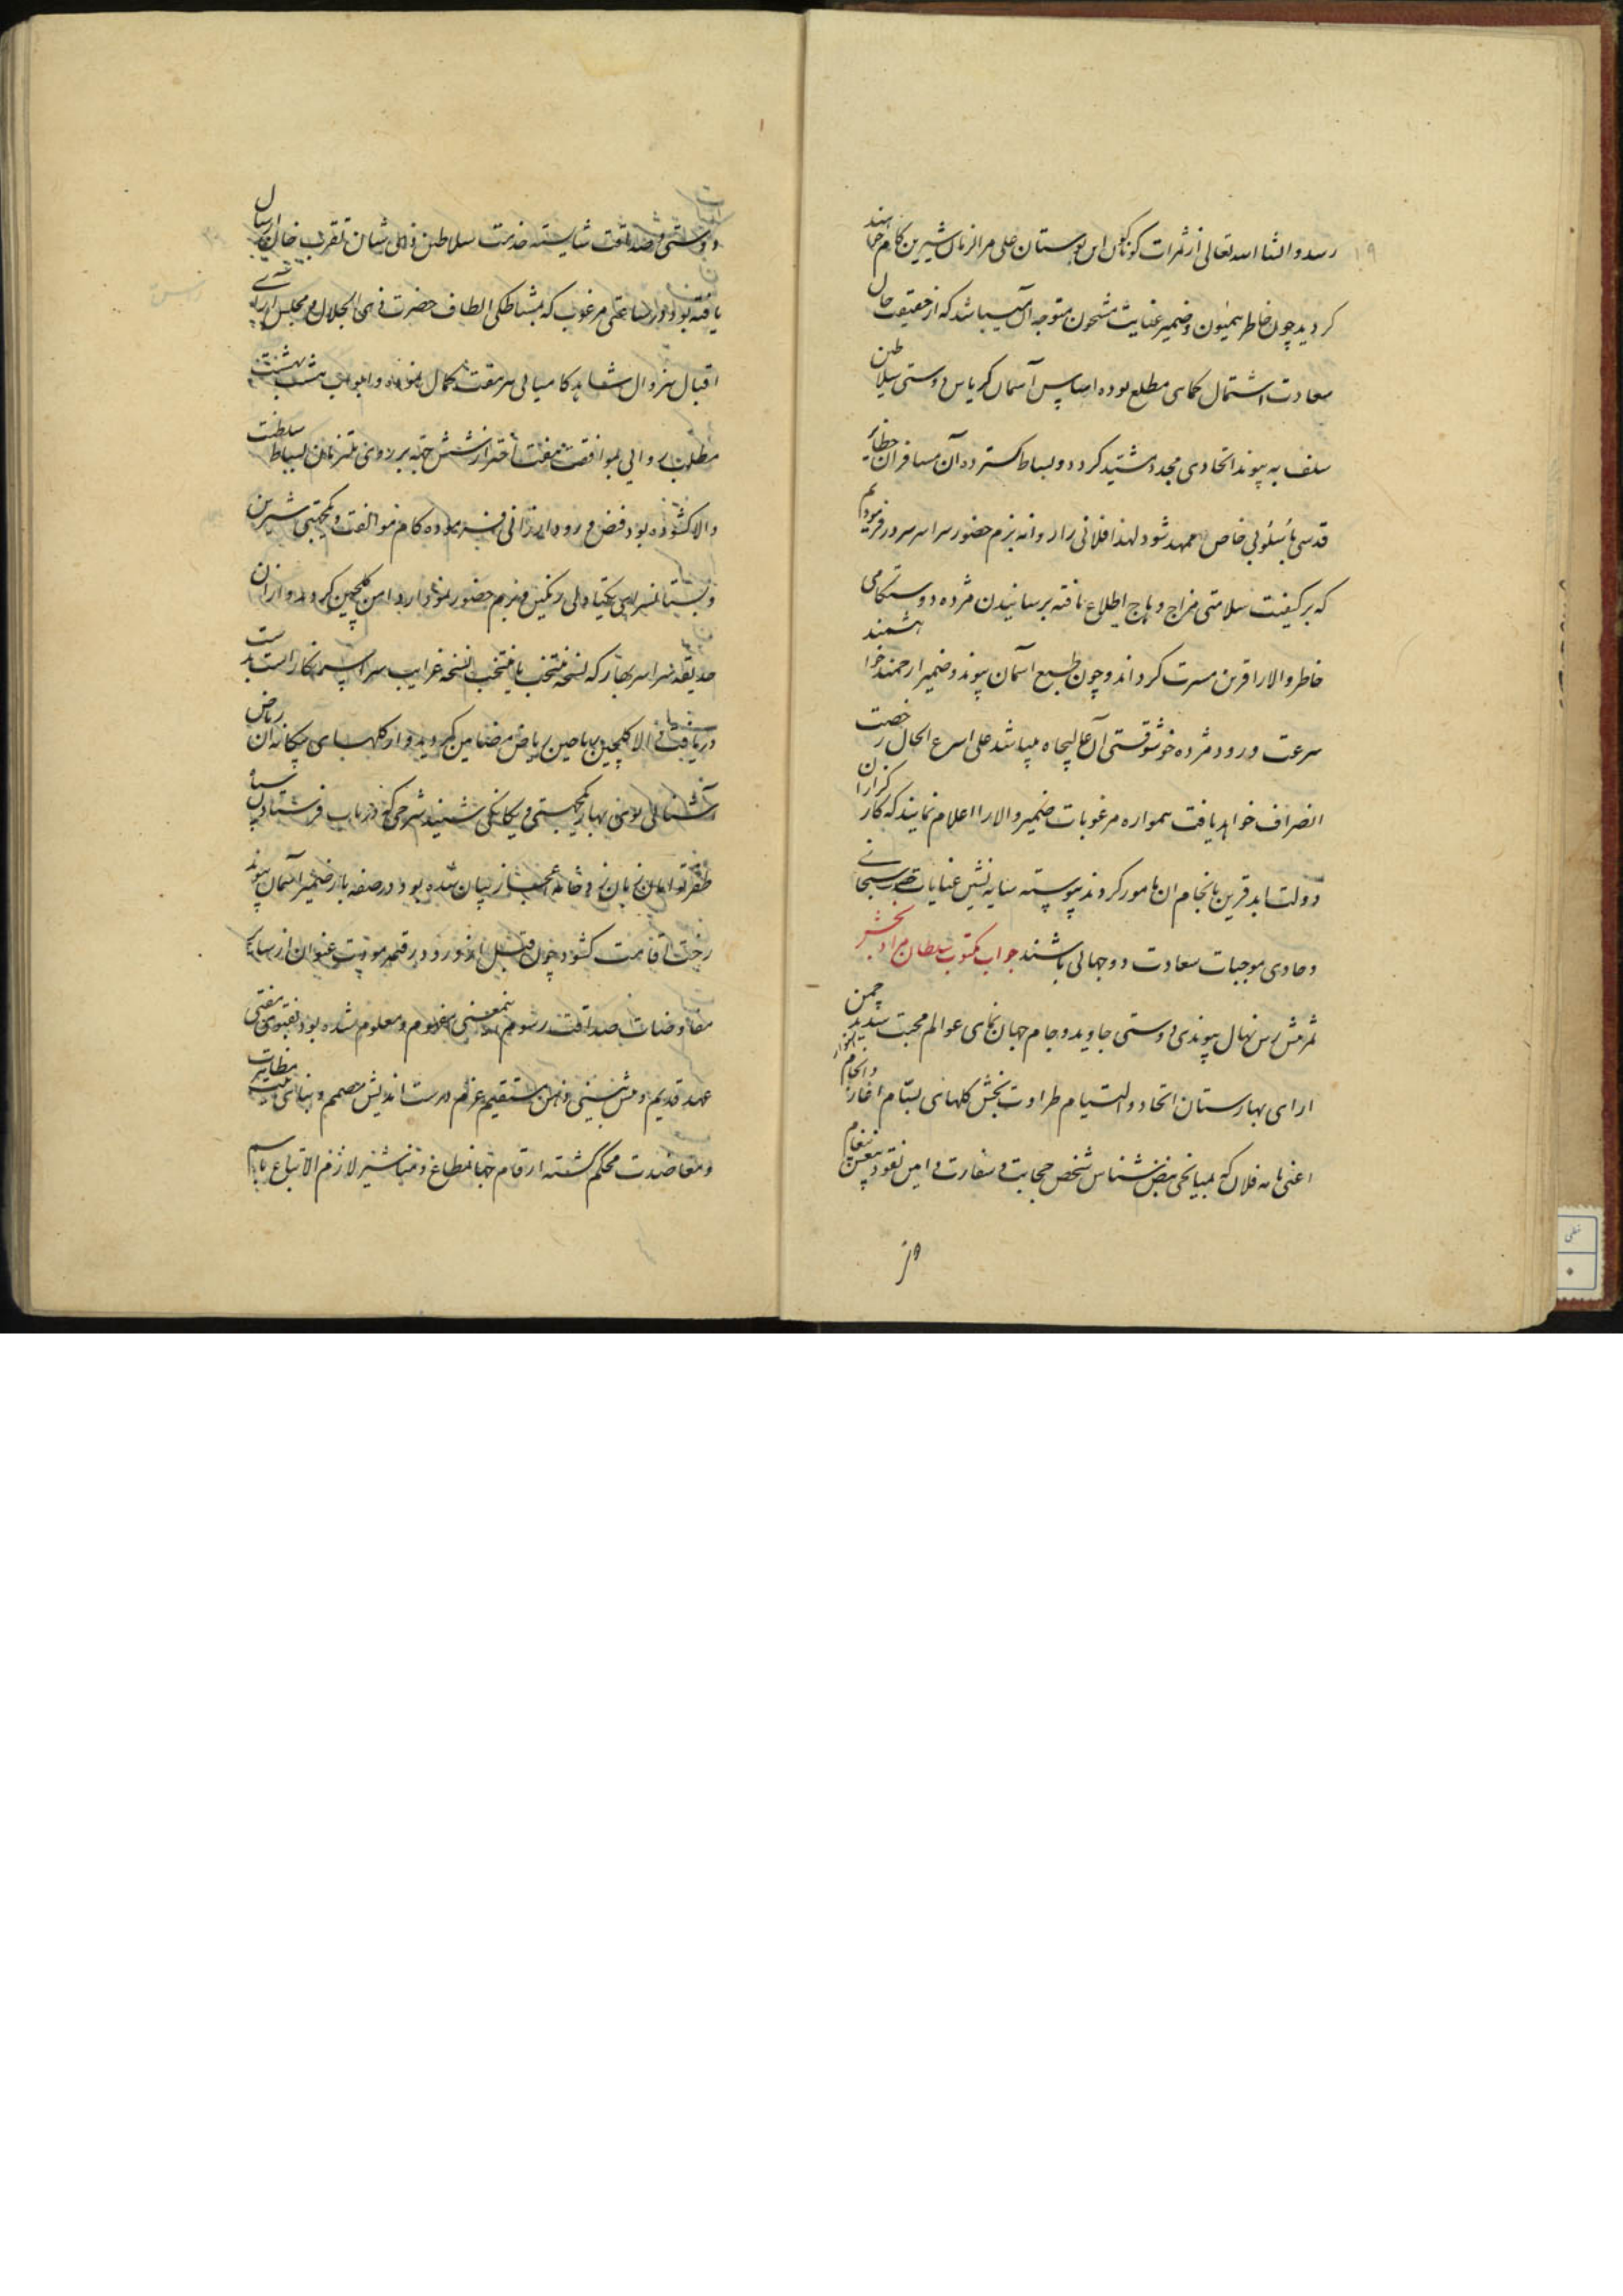 ۱۹
رسد و انشاء الله تعالی از ثمرات گوناگون این بوستان علی مر الزمان شیرین کام خواهند
کردید چون خاطر همیون و ضمیر عنایت مشحون متوجه آن میباشد که از حقیقت حال
سعادت اشتمال کماهی مطلع بوده اساس آسمان کریاس دوستی سلاطین
سلف به پیوند اتحادی مجدد مشید کردد و بساط کسترده آن مسافران حظایر
قدسی باسلوبی خاص ممهد شود لهذا فلانی را روانه بزم حضور سراسر سرور فرمودیم
که بر کیفیت سلامتی مزاج وهاج اطلاع یافته برسانیدن مژده دوستکامی
خاطر والا را قرین مسرت کرداند و چون طبع آسمان پیوند و ضمیر ارجمند خواهشمند
سرعت ورود مژده خوشوقتی آن عالیجاه میباشد علی اسرع الحال رخصت
انصراف خواهد یافت همواره مرغوبات ضمیر والا را اعلام نمایند که کارکزاران
دولت ابد قرین بانجام آن مامور کردند پیوسته سایه نشین عنایات حضرت سبحانی
و حاوی موجبات سعادت دو جهانی باشند جواب مکتوب سلطان مراد بخش
ثمر پیش رس نهال پیوندی دوستی جاوید و جام جهان نمای عوالم محبت سدید چمن
ارای بهارستان اتحاد و التیام طراوت بخش کلهای بستان آغاز و انجام
اعنی نامه فلان که بمیانجی نبض شناس شخص حجابت و سفارت و امین نقود
واز
دوستی و صداقت شایسته خدمت سلاطین ذوی شان تقریب نگار ارسال
یافته بود در ساعتی مرغوب که بمشاطکی الطاف حضرت ذی الجلال در مجلس آرای
اقبال بیزوال شاهد کامیابی سر مقنعه کمال نموده و ابواب هشت بهشت
مطلب روایی بموافقت هفت اختر از شش جهه بر روی ملتزمان بساط سلطنت
والا کشوده بود فیض ورود ارزانی فرموده کام موالفت و یکجهتی شیرین
و بستانسرای یکتادلی رنکین و بزم حضور نمودار دامن کلچین کردید و از آن
حدیقه سراسر بهار که نسخه منتخب یا منتخب نسخه غرایب
دریافت والا کلچین ریاحین ریاض مضامین کردید و از کلهای یکانه آن ریاض
آشنایی بوی بهار یکجهتی و یکانکی شنید شرحی که در باب فرستادن سپاه
ظفر توامان زبان زد خامه عجب از بیان شده بود در صفه بار ضمیر آسمان پیوند
رخت اقامت کشود چون قبل از ورود رقمه مودت عنوان از رسانیدن
مفاوضات صداقت رسوم اینمعنی مفهوم و معلوم شده بود بفتوی مفتی
عهد قدیم و پیش بینی ذهن مستقیم عزم درست اندیش مصمم و بنای مظاهرت
و معاضدت محکم کشته ارقام جهانمطاع و مناشیر لازم الاتباع باسم